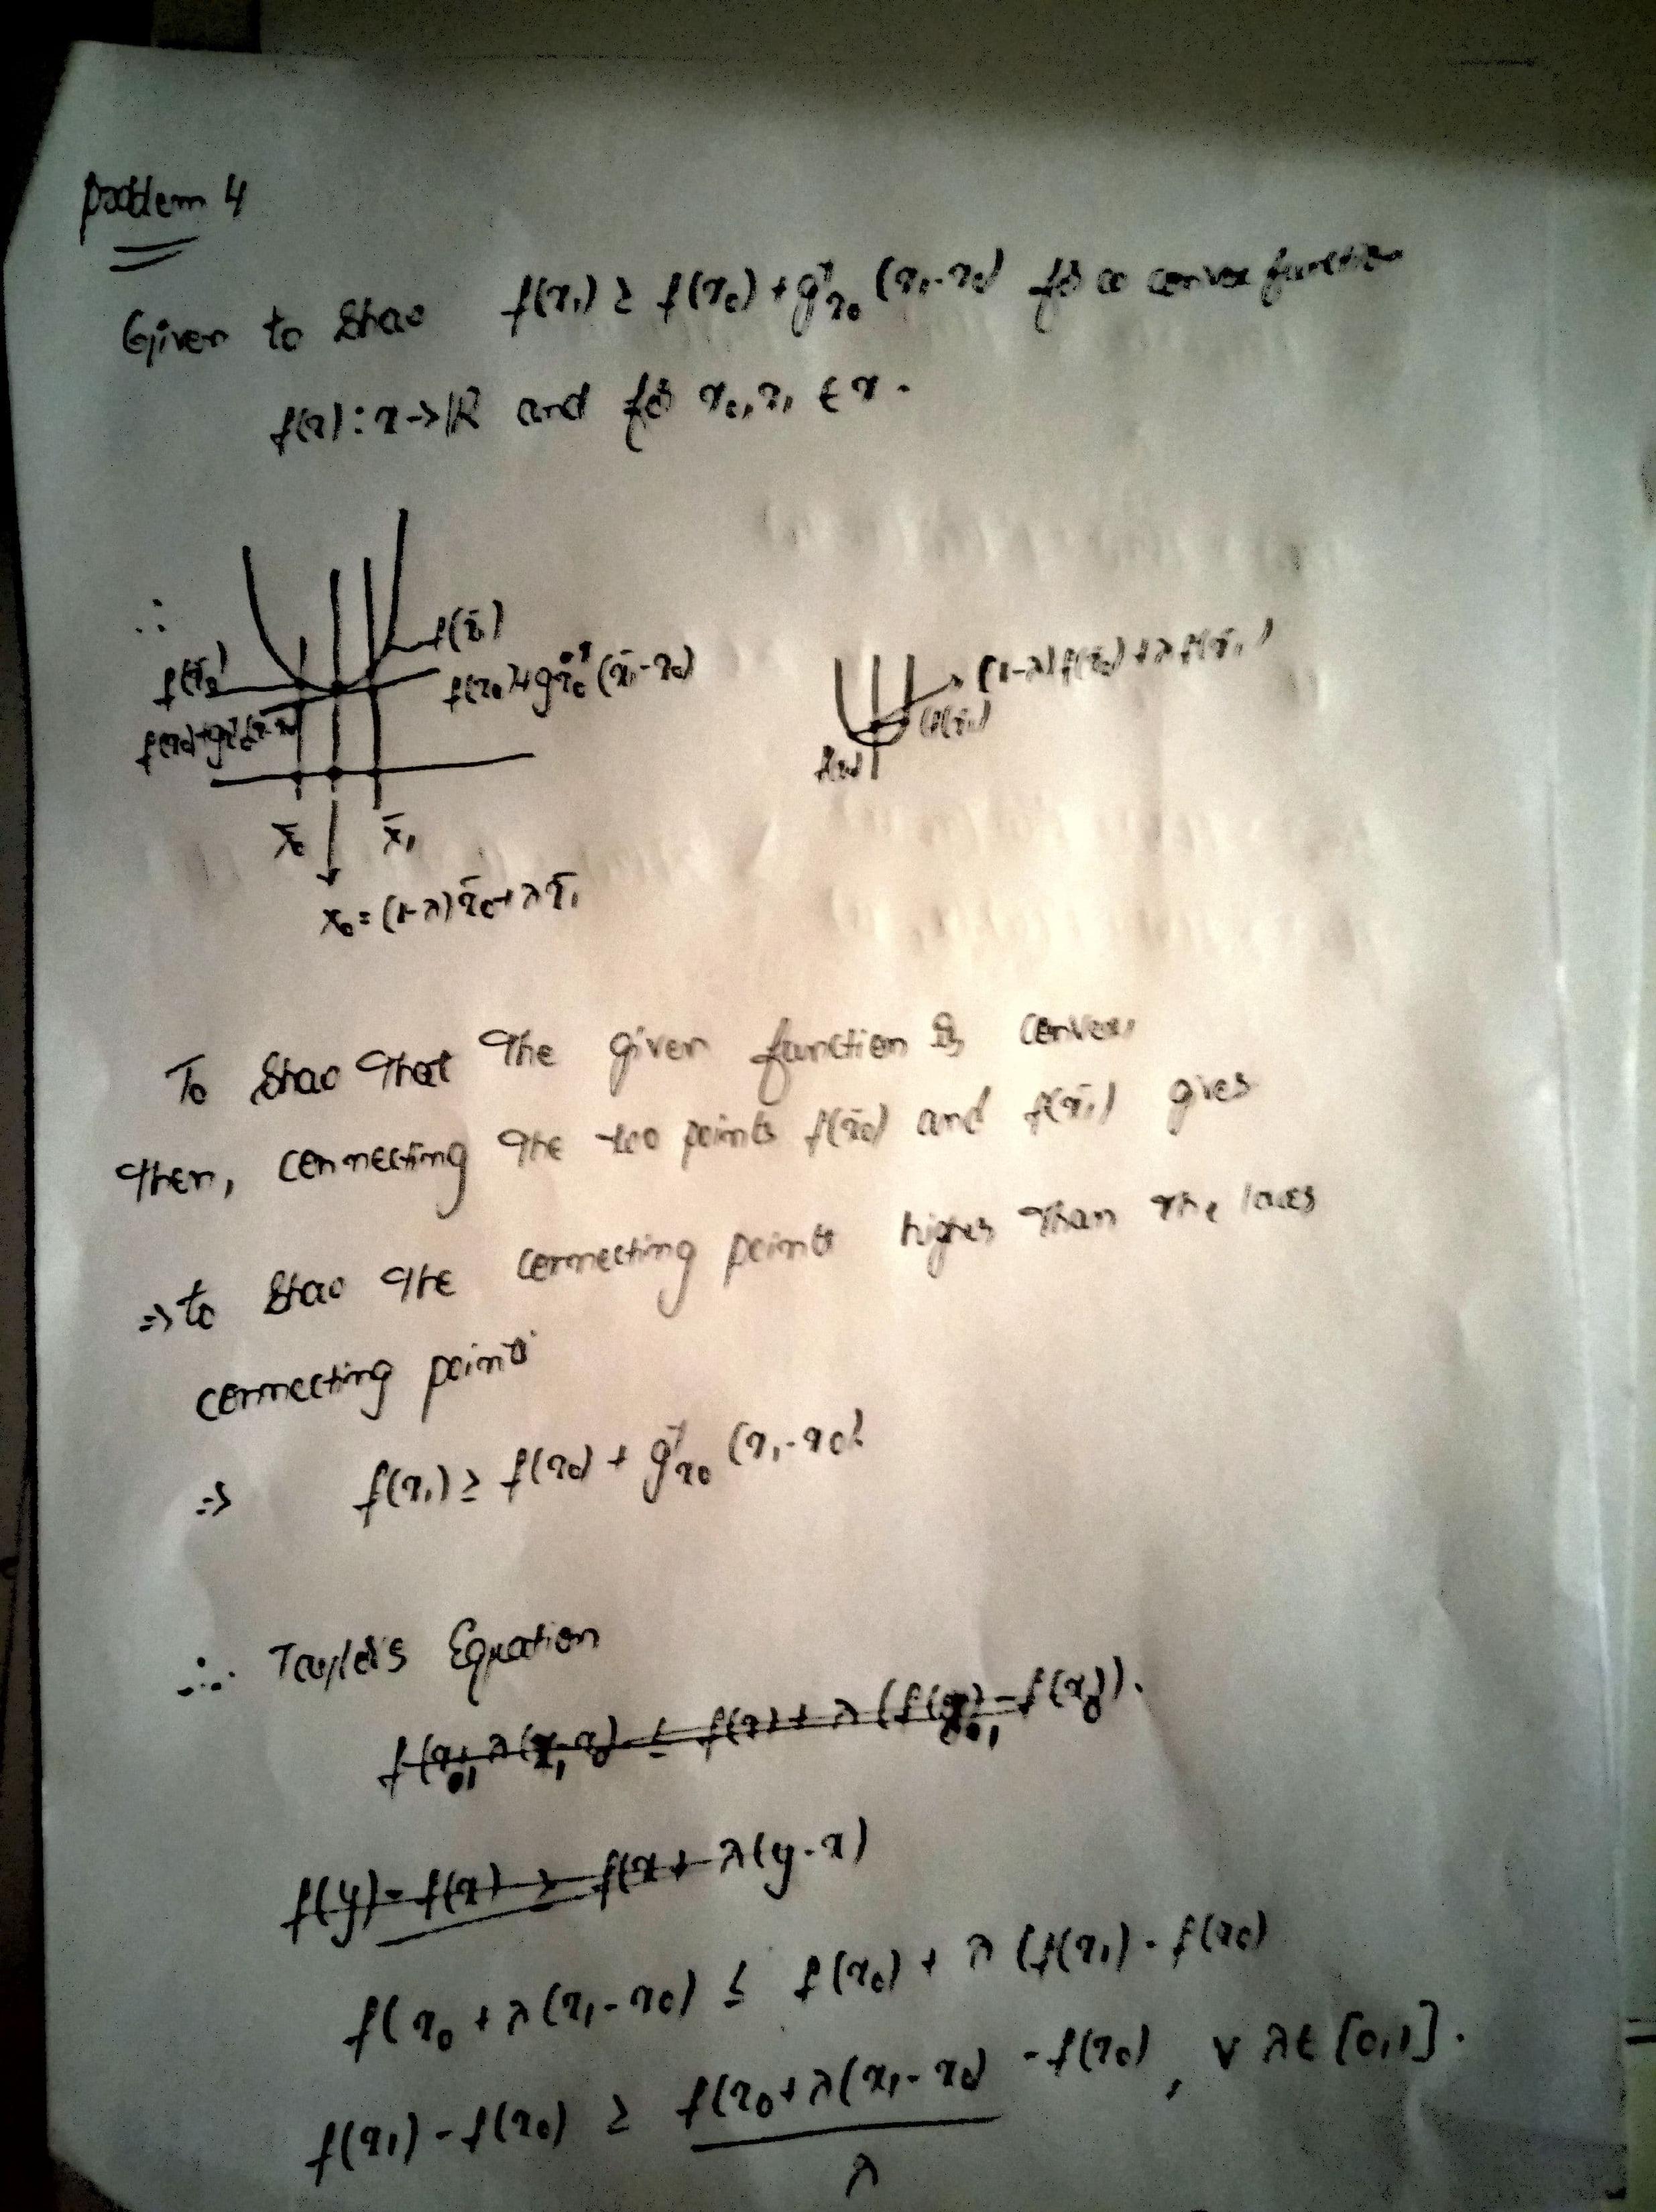 Problem 4
Given to Show f(x₁) ≥ f(x₀) + gᵀx₀ (x₁-x₀) for a convex function
f(x): x → ℝ and for x₀, x₁ ∈ x.
∴
f(x̄₁)
f(x̄₀)
f(x₀)+gᵀx₀ (x̄₁-x₀)
(1-λ)f(x̄₀)+λf(x̄₁)
f(x₀)
x̄₀ x̄₁
x₀ = (1-λ)x̄₀+λx̄₁
To Show that the given function is convex
then, connecting the two points f(x̄₀) and f(x̄₁) gives
⇒ to Show the connecting points higher than the lower
connecting points
⇒ f(x₁) ≥ f(x₀) + gᵀx₀ (x₁-x₀)
∴ Taylor's Equation
f(y) - f(x) ≥ f(x + λ(y-x)
f(x₀ + λ(x₁-x₀) ≤ f(x₀) + λ (f(x₁) - f(x₀)
f(x₁) - f(x₀) ≥ f(x₀+λ(x₁-x₀) - f(x₀), ∀ λ∈[0,1].
λ